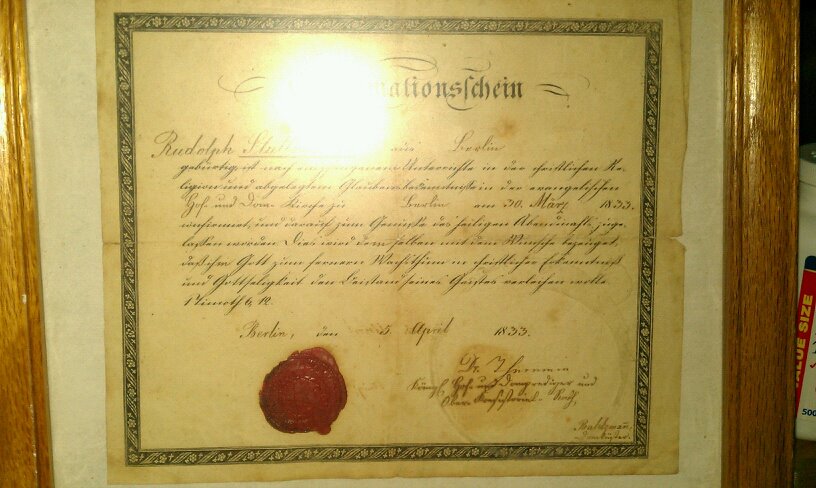 mationsschein
Rudolph Berlin
gebürtig ist nach Unterrichte in der christlichen Re-
ligion und abgelegtem Glaubensbekenntniß in der evangelischen
Hof- und Dom-Kirche zu Berlin am 30. März 1833.
confirmirt, und darauf zum Genusse des heiligen Abendmahls zuge-
lassen worden. Dies wird demselben mit dem Wunsche bezeuget,
daß ihm Gott zum fernern Wachsthum in christlicher Erkenntniß
und Gottseligkeit den Beistand seines Geistes verleihen wolle.
1 Timoth 6, 12.
Berlin, den 5 April 1833.
Dr. Theremin
Königl. Hof- und Domprediger und
Ober-Consistorial-Rath.
VALUE SIZE
500